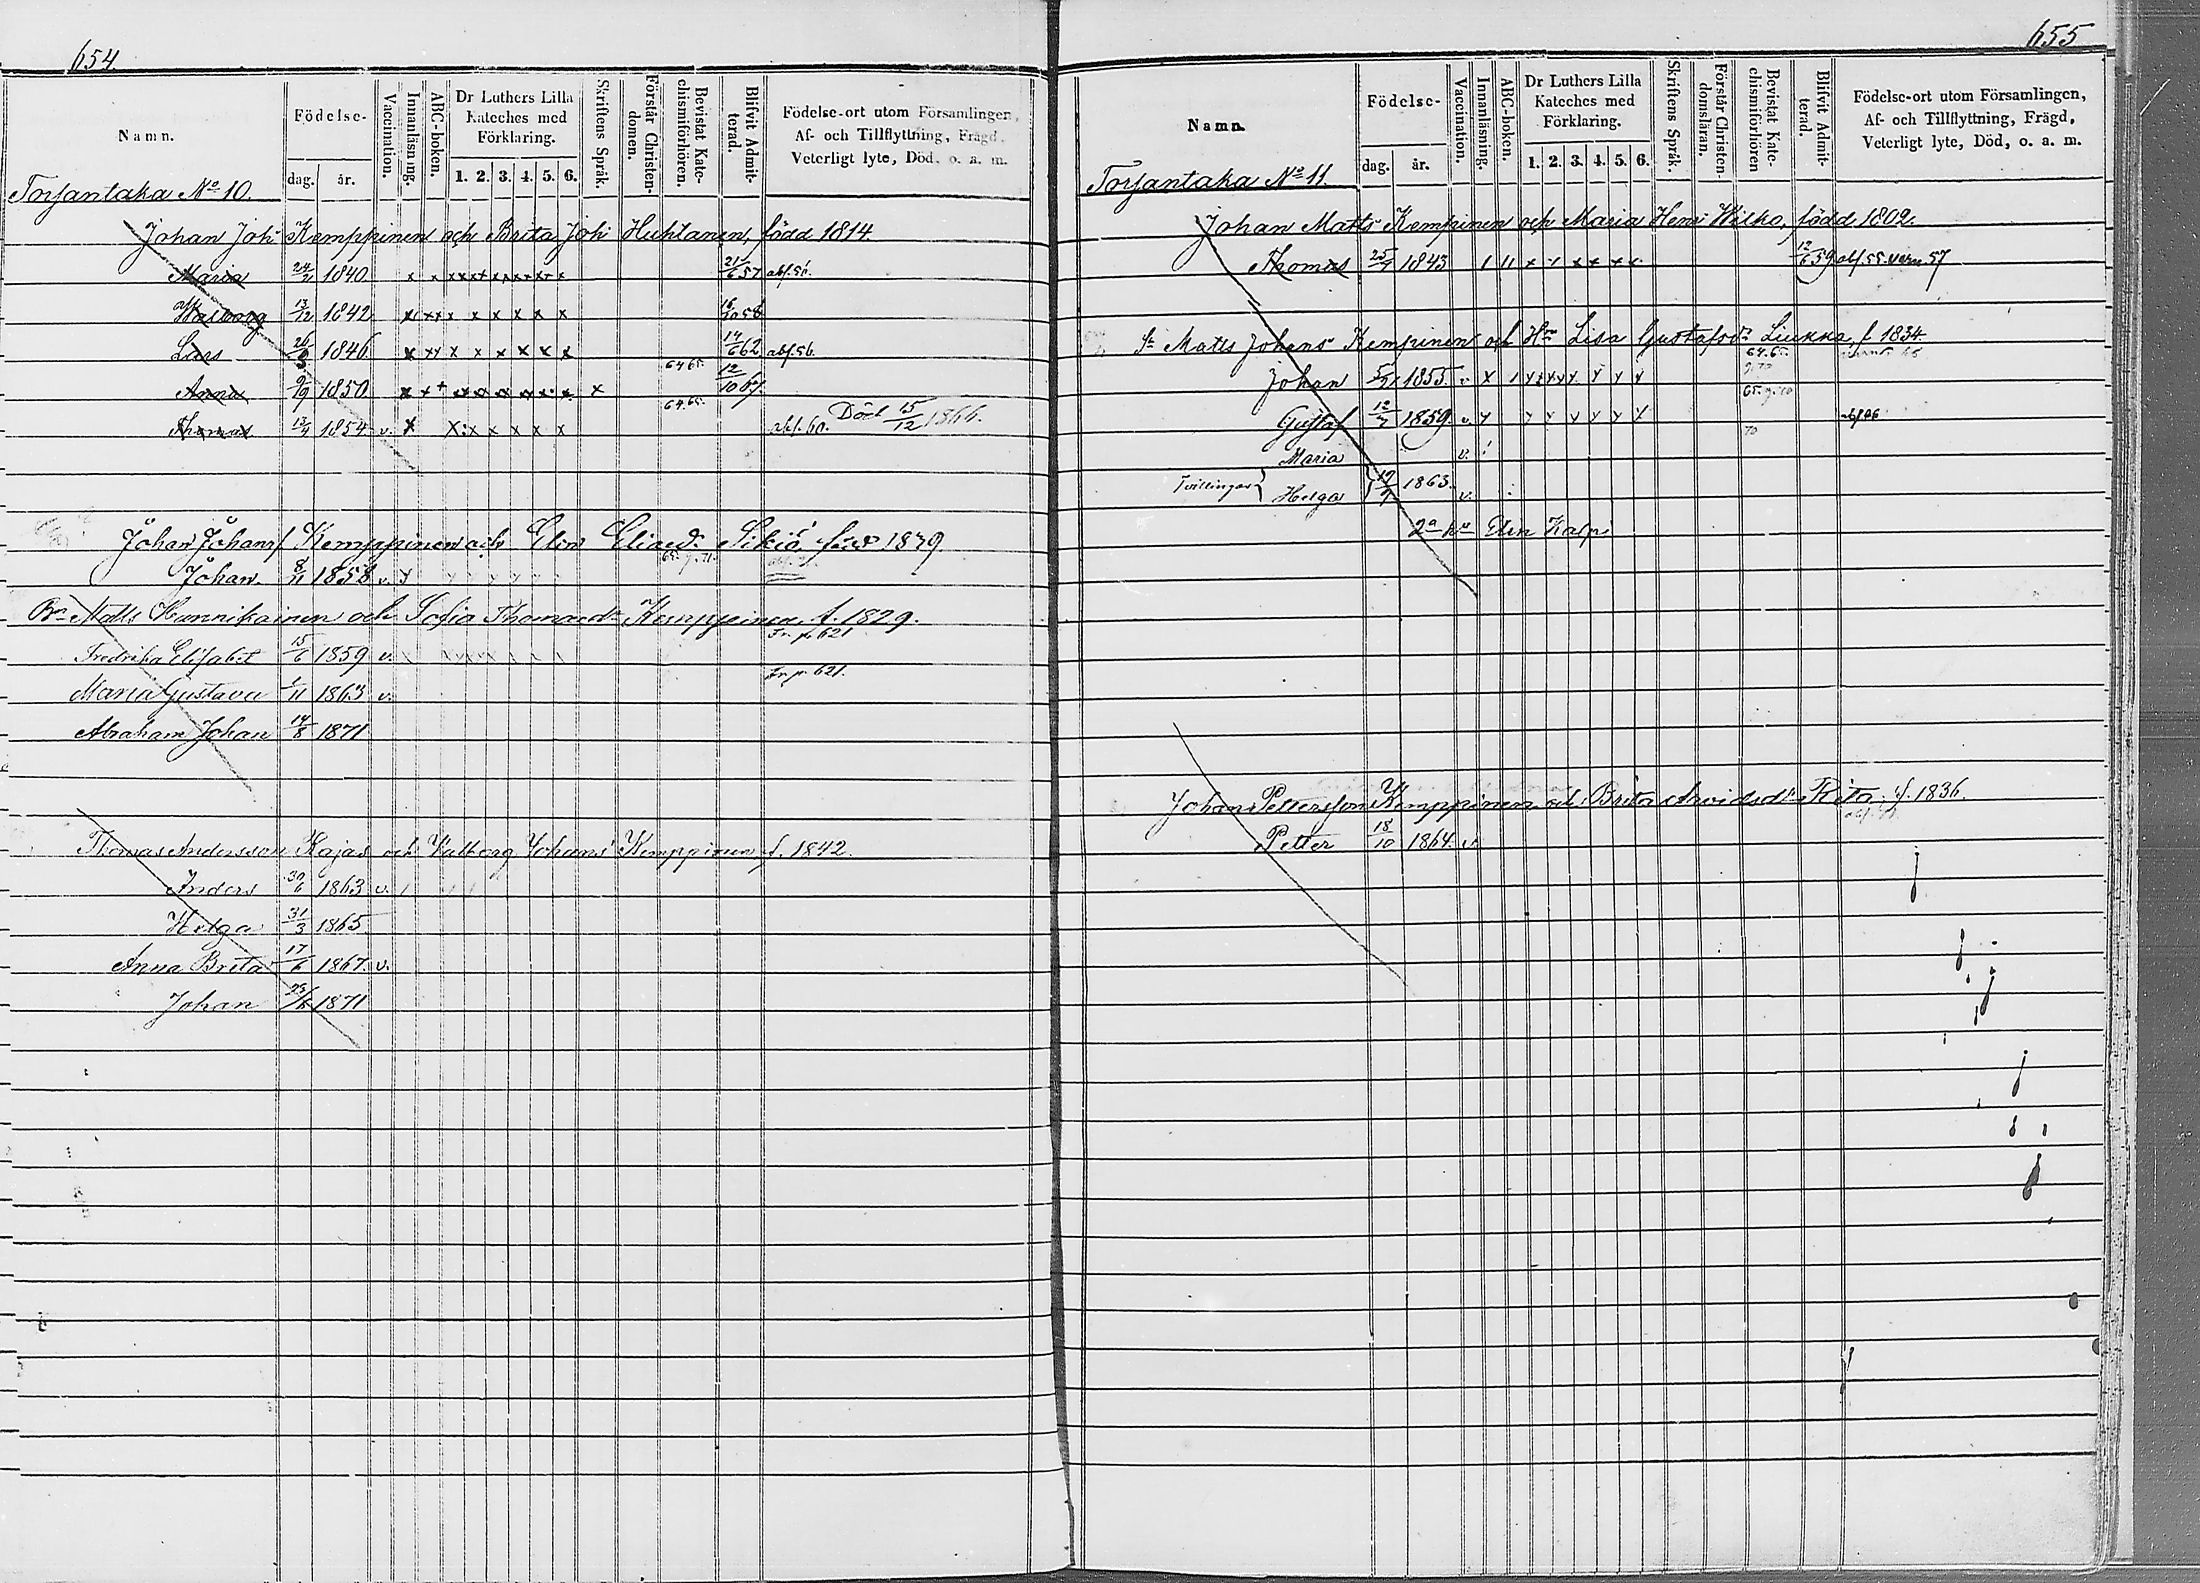 654
Namn.
Födelse-
dag. år.
Vaccination.
Innanläsning.
ABC-boken.
Dr Luthers Lilla Kateches med Förklaring.
1. 2. 3. 4. 5. 6.
Skriftens Språk.
Förstår Christendomen.
Bevistat Katechismiförhören.
Blifvit Admitterad.
Födelse-ort utom Församlingen, Af- och Tillflyttning, Frägd, Veterligt lyte, Död, o. a. m.
Torsantaka No 10.
Johan Joh: Kemppinen och Brita Joh: Huhtanen, född 1814.
Maria 24/2 1840. x x x x x x x x x x 21/6 57 abs. 56.
Walborg 13/12 1842 x x x x x x x x x 16/10 58
Lars 26/3 1846 x x x x x x x x x 14/6 62 abs. 56.
Anna 9/9 1850 x x + x x x x x x x 64 65. 12/10 67.
Thomas 13/4 1854 v. x x x x x x x 64. 65. abs. 60. Död 15/12 1866.
Johan Johans. Kemppinen och Elin Eliaed. Sikiö, född 1839.
Johan 8/11 1858 v. y
Matts Hannikainen och Sofia Thomaed. Kemppinen f. 1829.
Fredrika Elisabet 15/6 1859 v. Fr. p. 621
Maria Gustava 1/11 1863 v. Fr. p. 621.
Abraham Johan 14/8 1871
Thomas Andersson Kajas och Valborg Johans Kemppinen f. 1842.
Anders 30/6 1863 v.
Helga 31/3 1865
Anna Brita 17/6 1867. v.
Johan 1871
655
Namn.
Födelse-
dag. år.
Vaccination.
Innanläsning.
ABC-boken.
Dr Luthers Lilla Kateches med Förklaring.
1. 2. 3. 4. 5. 6.
Skriftens Språk.
Förstår Christendomsläran.
Bevistat Katechismiförhören
Blifvit Admitterad.
Födelse-ort utom Församlingen, Af- och Tillflyttning, Frägd, Veterligt lyte, Död, o. a. m.
Torsantaka No 11.
Johan Matts Kempinen och Maria Henr Wilko, född 1802.
Thomas 25/7 1843 12/6 59 abs. 55. 57
Matts Johans Kempinen och Hu Lisa Gustafsdr Liukka, f 1834.
Johan 1855. v x 64. 65.
Gustaf 12/7 1859. v. y 65.
Maria v.
Tvillingar { Helga } 1863. v.
2a hu Elin Kalpi
Johan Pettersson Kemppinen och Brita Arvidsdr Rita. f. 1836.
Petter 18/10 1864. v.